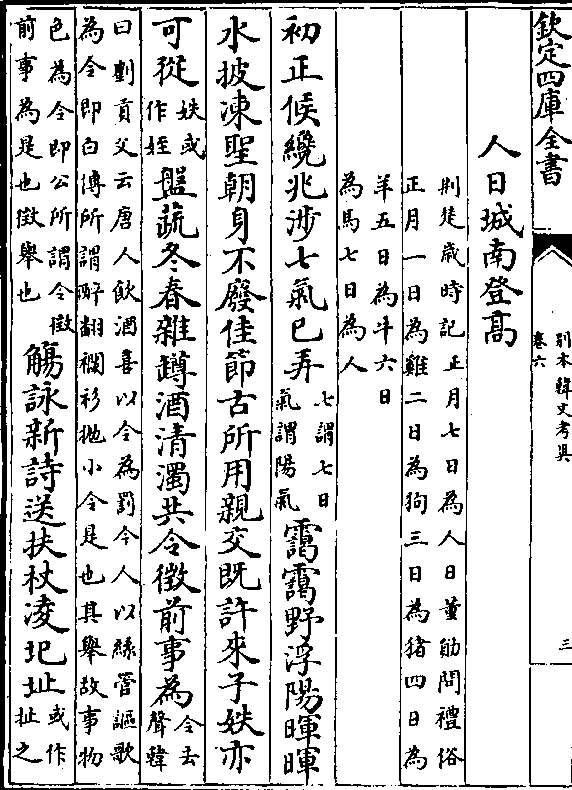 欽定四庫全書
別本韓文考異
卷六
三
人日城南登高
荆楚歲時記正月七日為人日董勛問禮俗
正月一日為雞二日為狗三日為猪四日為
羊五日為牛六日
為馬七日為人
初正候纔兆涉七氣已弄七謂七日氣謂陽氣靄靄野浮陽暉暉
水披凍聖朝身不廢佳節古所用親交既許來子妷亦
可從妷或作姪盤蔬冬春雜罇酒清濁共令徵前事為令去聲韓
曰劉貢父云唐人飲酒喜以令為罰今人以絲管謳歌
為令即白傅所謂醉翻襴衫抛小令是也其舉故事物
色為令即公所謂令徵
前事為是也徵舉也
觴詠新詩送扶杖凌圮址或作扯之